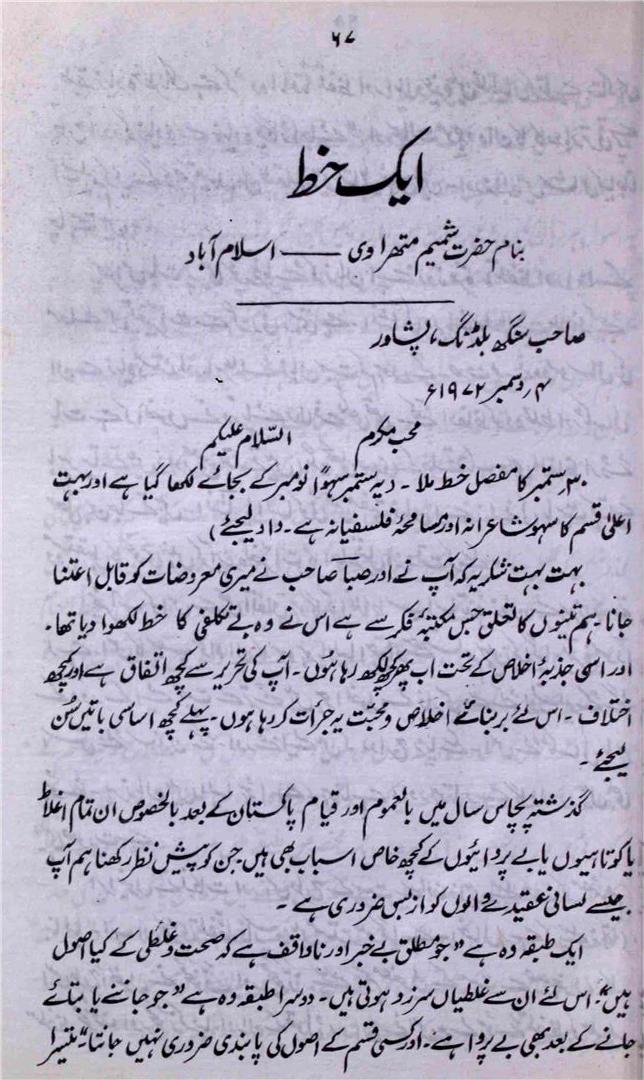 ۶۷
ایک خط
بنام حضرت شمیم متھراوی —— اسلام آباد
صاحب سنگھ بلڈنگ، پشاور
۴ر دسمبر ۱۹۷۲ء
محب مکرم السّلام علیکم
۳۰ر ستمبر کا مفصل خط ملا ۔ (یہ ستمبر سہواً نومبر کے بجائے لکھا گیا ہے اور بہت
اعلیٰ قسم کا سہو شاعرانہ اور مسامحۂ فلسفیانہ ہے ۔ داد لیجئے)
بہت بہت شکریہ کہ آپ نے اور صباؔ صاحب نے میری معروضات کو قابل اعتنا
جانا ۔ ہم تینوں کا تعلق جس مکتبۂ فکر سے ہے اس نے وہ بے تکلفی کا خط لکھوا دیا تھا ۔
اور اسی جذبۂ اخلاص کے تحت اب پھر کچھ لکھ رہا ہوں ۔ آپ کی تحریر سے کچھ اتفاق ہے اور کچھ
اختلاف ۔ اس لئے بر بنائے اخلاص و محبت یہ جرأت کر رہا ہوں ۔ پہلے کچھ اساسی باتیں سُن
لیجئے ۔
گذشتہ پچاس سال میں بالعموم اور قیام پاکستان کے بعد بالخصوص ان تمام اغلاط
یا کوتاہیوں یا بے پروائیوں کے کچھ خاص اسباب بھی ہیں جن کو پیش نظر رکھنا ہم آپ
جیسے لسانی عقیدے والوں کو از بس ضروری ہے ۔
ایک طبقہ وہ ہے "جو مطلق بے خبر اور ناواقف ہے کہ صحت و غلطی کے کیا اصول
ہیں" ۔ اس لئے ان سے غلطیاں سرزد ہوتی ہیں ۔ دوسرا طبقہ وہ ہے "جو جاننے یا بتائے
جانے کے بعد بھی بے پروا ہے ۔ اور کسی قسم کے اصول کی پابندی ضروری نہیں جانتا" تیسرا